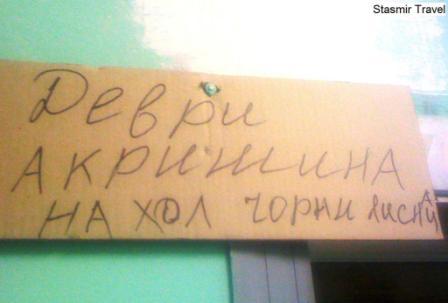 Stasmir Travel
Деври
Акришина
на хол чорни лисна